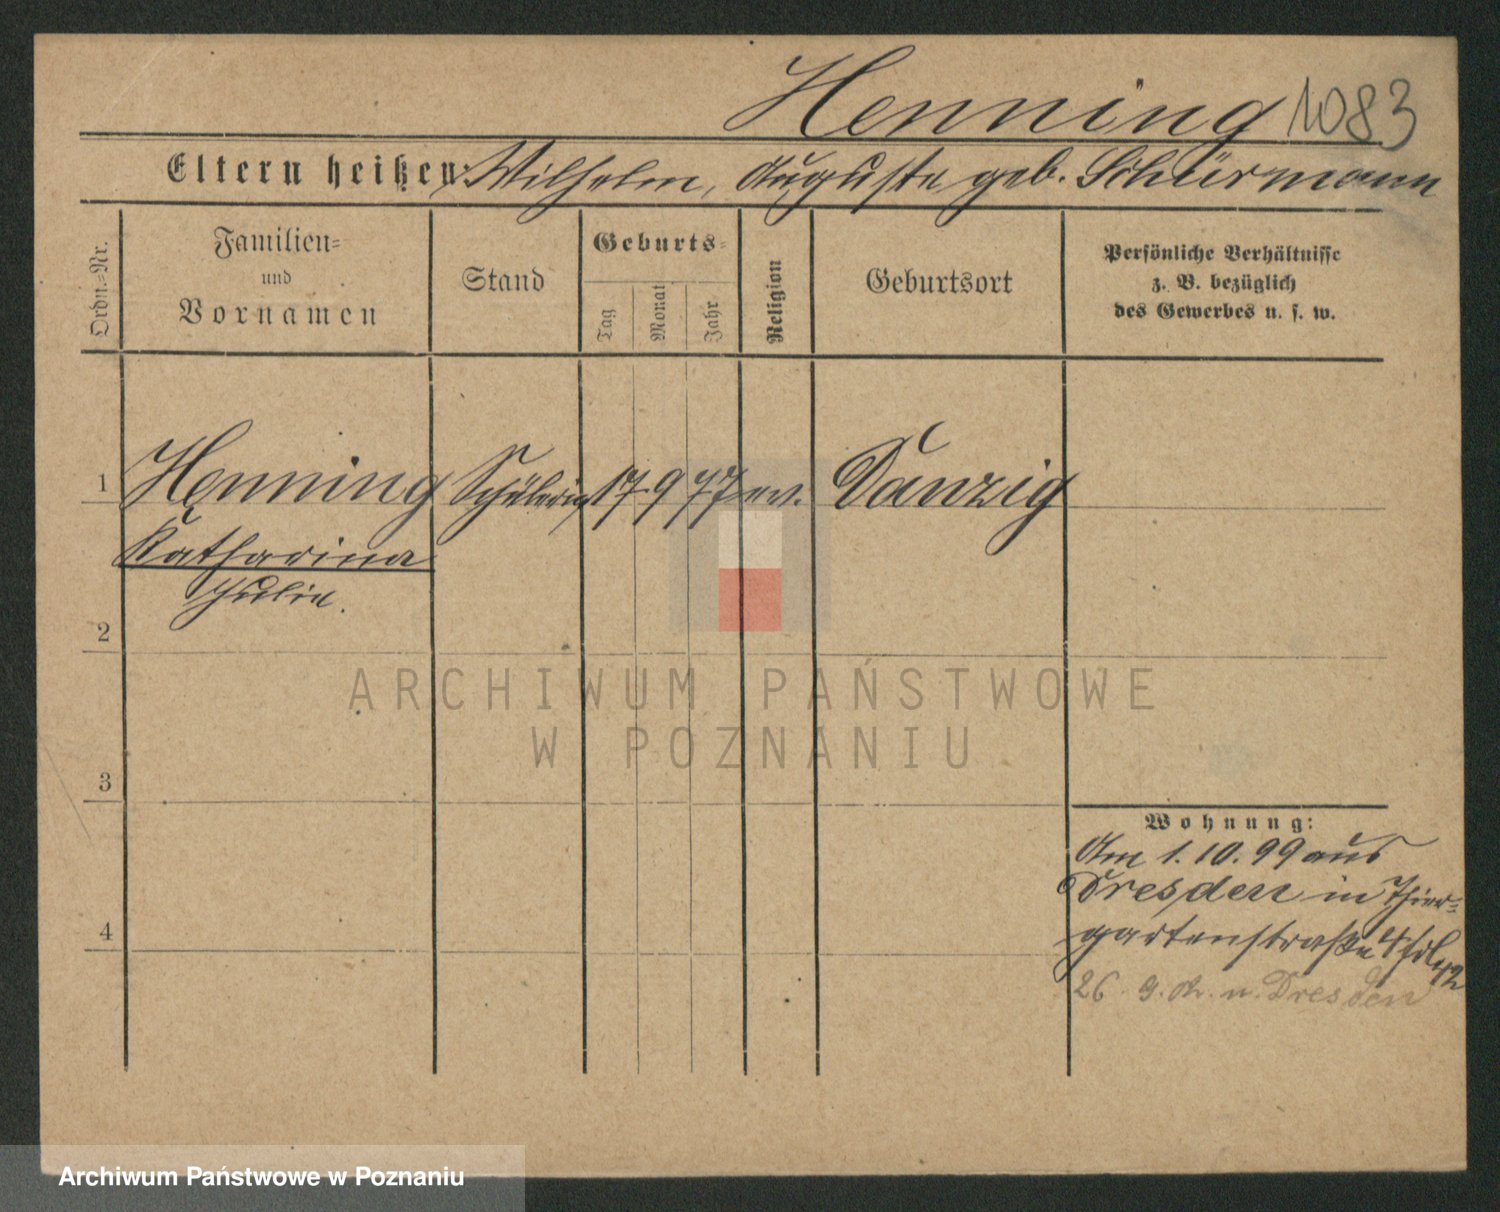 Henning 1083
Eltern heißen: Wilhelm, Auguste geb. Schürmann
Ordn.-Nr.
Familien-
und
Vornamen
Stand
Geburts-
Tag
Monat
Jahr
Religion
Geburtsort
Persönliche Verhältnisse
z. B. bezüglich
des Gewerbes u. s. w.
1 Henning Schülerin 17 9 77 ev. Danzig
Katharina
Julie.
2
ARCHIWUM PAŃSTWOWE
W POZNANIU
3
Wohnung:
Am 1.10.99 aus
Dresden in Thier-
gartenstraße 4
4
26. 9. n. Dresden
Archiwum Państwowe w Poznaniu